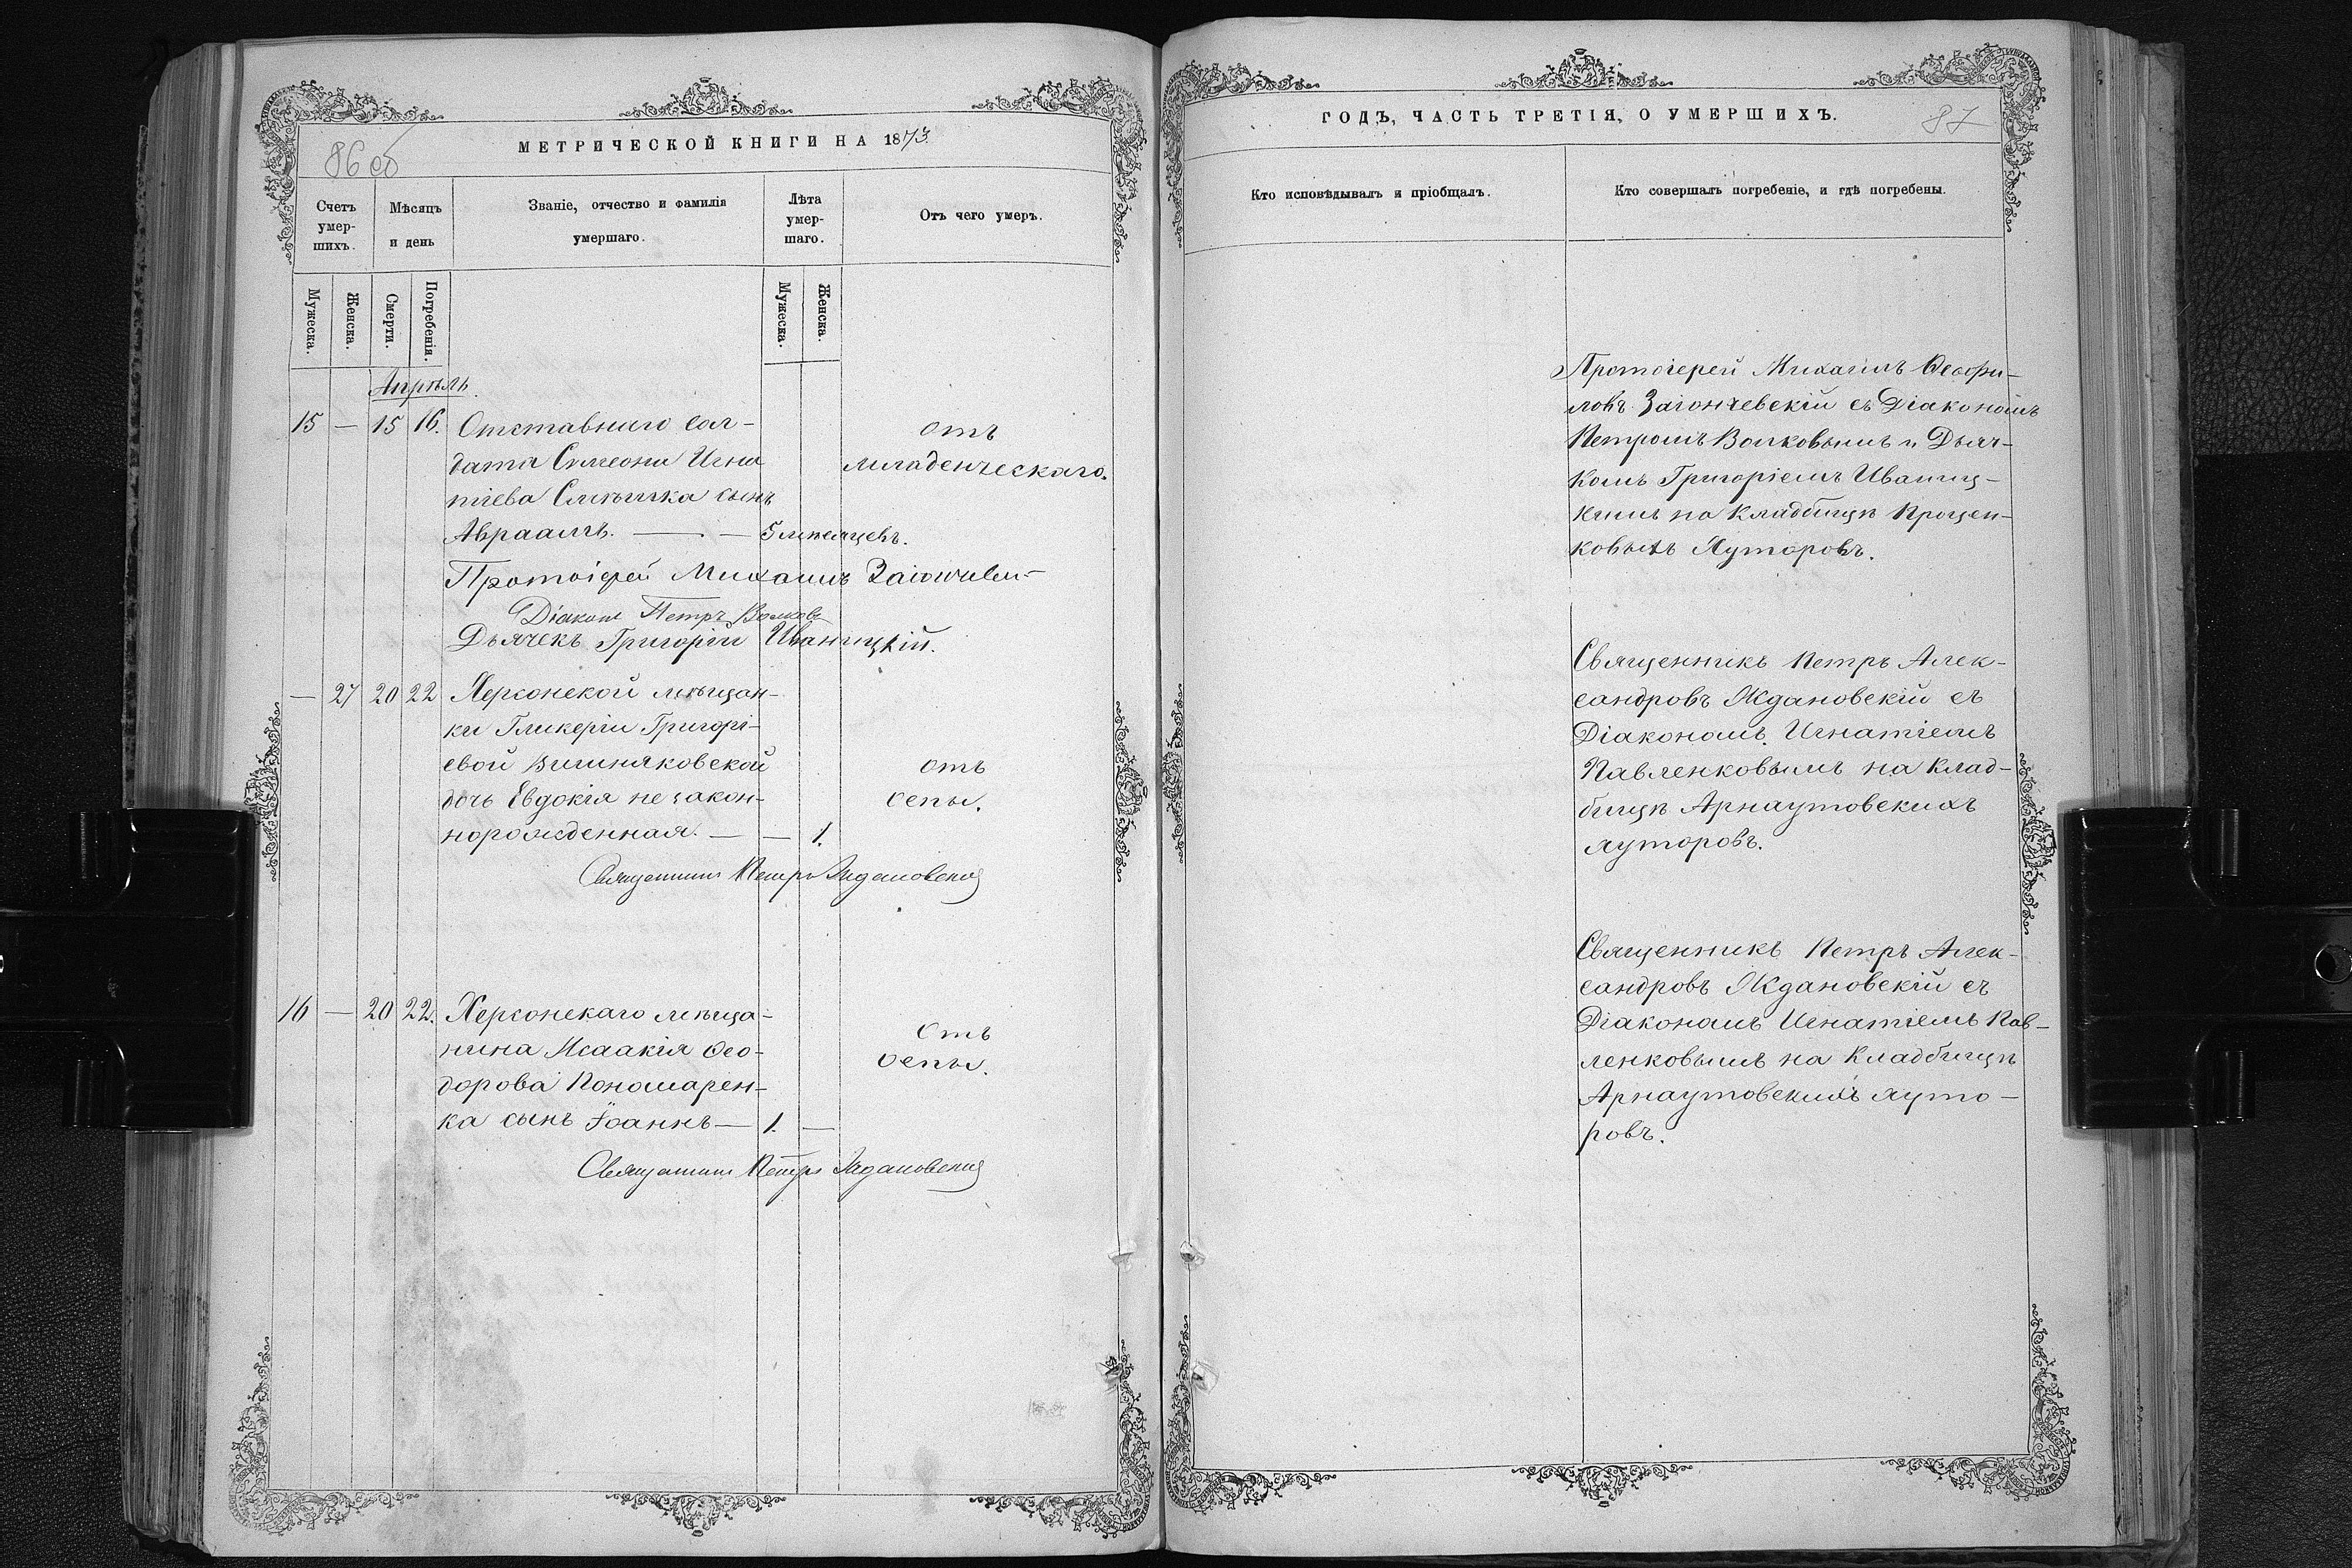 86 об
МЕТРИЧЕСКОЙ КНИГИ НА 1873
Счетъ умер-шихъ.
Мѣсяцъ и день
Званіе, отчество и фамилія умершаго.
Лѣта умер-шаго.
Отъ чего умеръ.
Мужеска.
Женска.
Смерти.
Погребенія.
Мужеска.
Женска.
Апрѣль.
15 — 15 16. Отставнаго сол-
дата Симеона Игна
тіева Слѣпика сынъ
Авраамъ. — — 5 мѣсяцевъ.
отъ
младенческаго.
Протоіерей Михаилъ
Діаконъ Петръ Волковъ
Дьячекъ Григорій Иваницкій.
— 27 20 22 Херсонской мѣщан-
ки Гликеріи Григорі-
евой Вишняковской
дочь Евдокія незакон-
норожденная. — — 1.
отъ
оспы.
Священникъ Петръ Ждановскій
16 — 20 22. Херсонскаго мѣща-
нина Исаакія Ѳео-
дорова Пономарен-
ка сынъ Іоаннъ — 1. —
Отъ
оспы.
Священникъ Петръ Ждановскій
ГОДЪ, ЧАСТЬ ТРЕТІЯ, О УМЕРШИХЪ.
87
Кто исповѣдывалъ и пріобщалъ.
Кто совершалъ погребеніе, и гдѣ погребены.
Протоіерей Михаилъ Ѳеофи-
ловъ Заіончевскій съ Діакономъ
Петромъ Волковымъ и Дьяч-
комъ Григоріемъ Иваниц-
кимъ на кладбищѣ Процен-
ковыхъ Хуторовъ.
Священникъ Петръ Алек-
сандровъ Ждановскій съ
Діакономъ Игнатіемъ
Павленковымъ на клад-
бищѣ Арнаутовскихъ
хуторовъ.
Священникъ Петръ Алек-
сандровъ Ждановскій съ
Діакономъ Игнатіемъ Пав-
ленковымъ на Кладбищѣ
Арнаутовскихъ хуто-
ровъ.